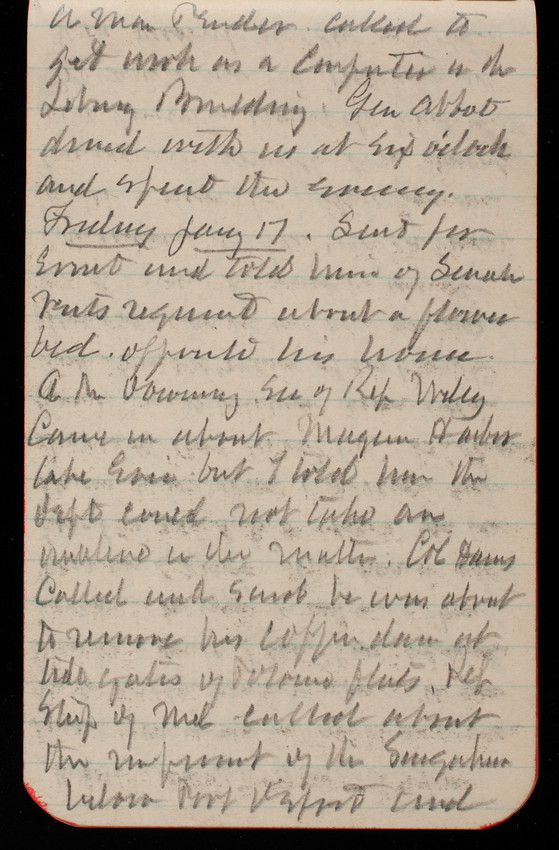 A man Pender called to
get work as a Computer in the
Library Building. Gen Abbot
dined with us at Six o'clock
and spent the evening.
Friday Jany 17. Sent for
and told him of Senator
request about a flower
bed. opposite his house
A Mr Downing Sec of Rep Wiley
Came in about Harbor
lake Erie but I told him the
Dept could not take an
in the matter. Col Hains
Called and said he was about
to remove his Coffer dam at
tide gates of Potomac flats. Rep
of Md called about
the of the Susquehanna
below Port Deposit and